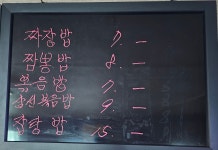 짜장밥 7. -
짬뽕밥 8. -
볶음밥 7. -
삼선볶음밥 9. -
잡탕밥 15. -